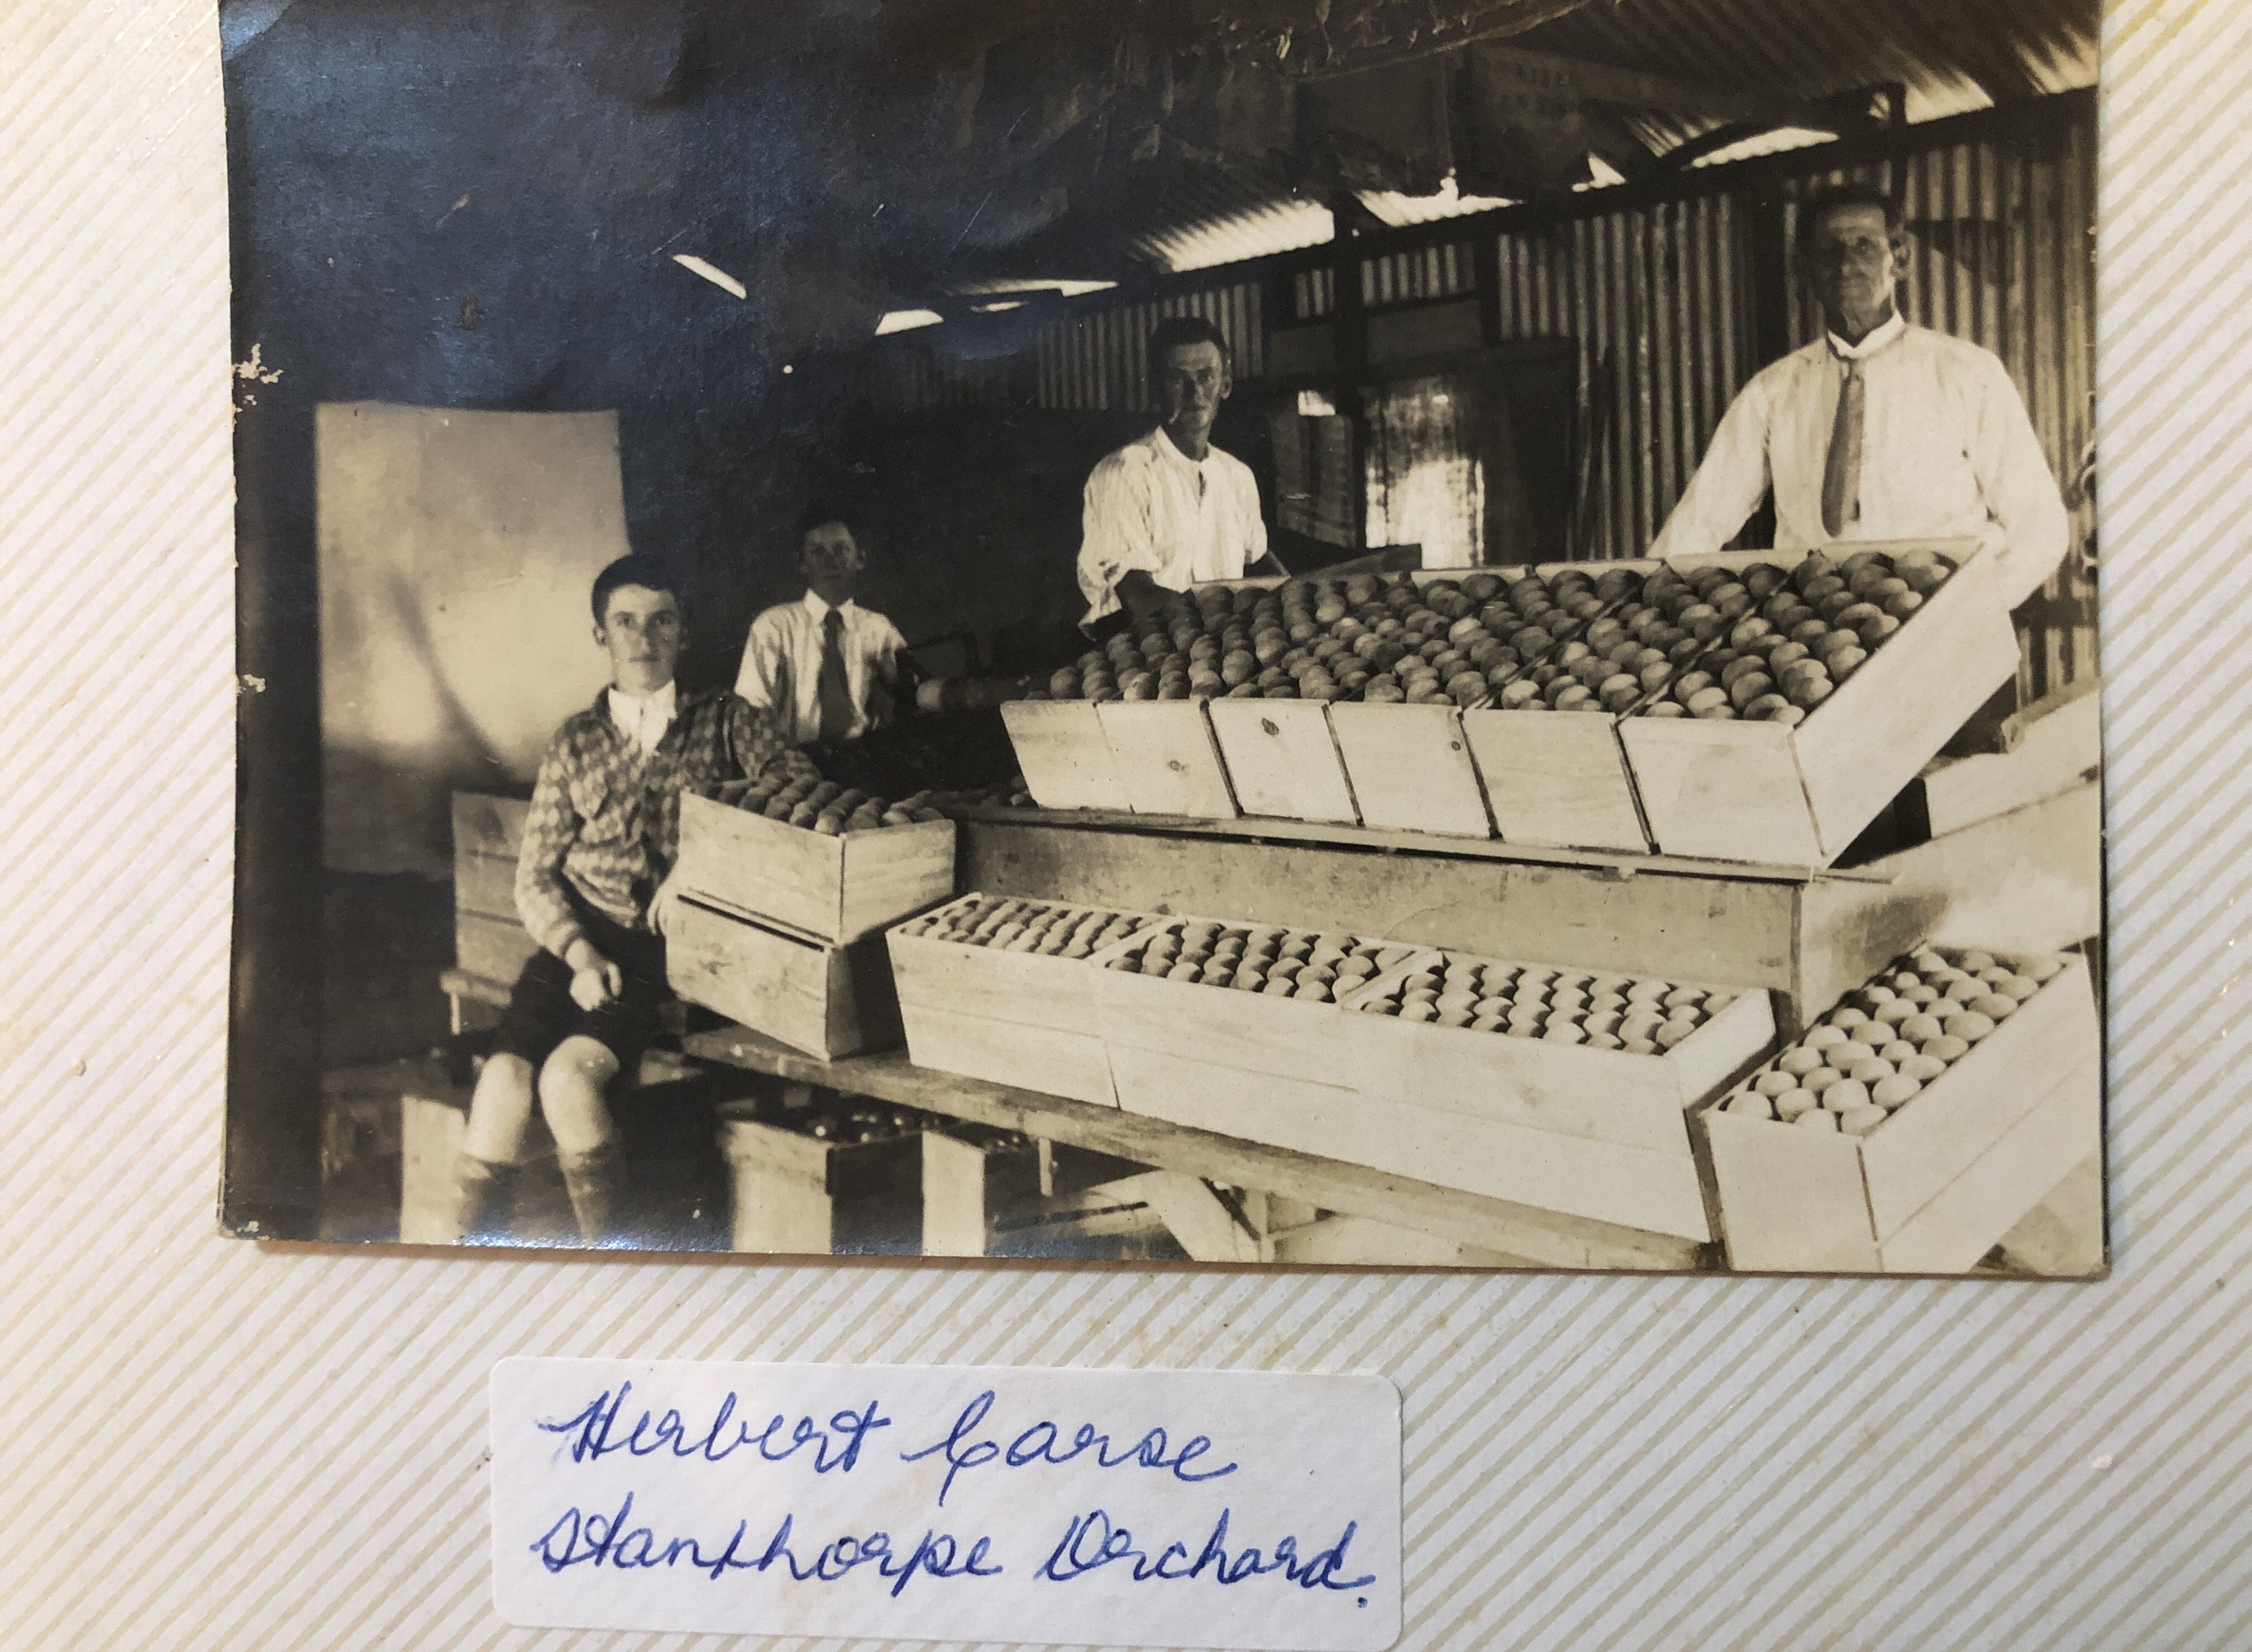 Herbert Carse
Stanthorpe Orchard.